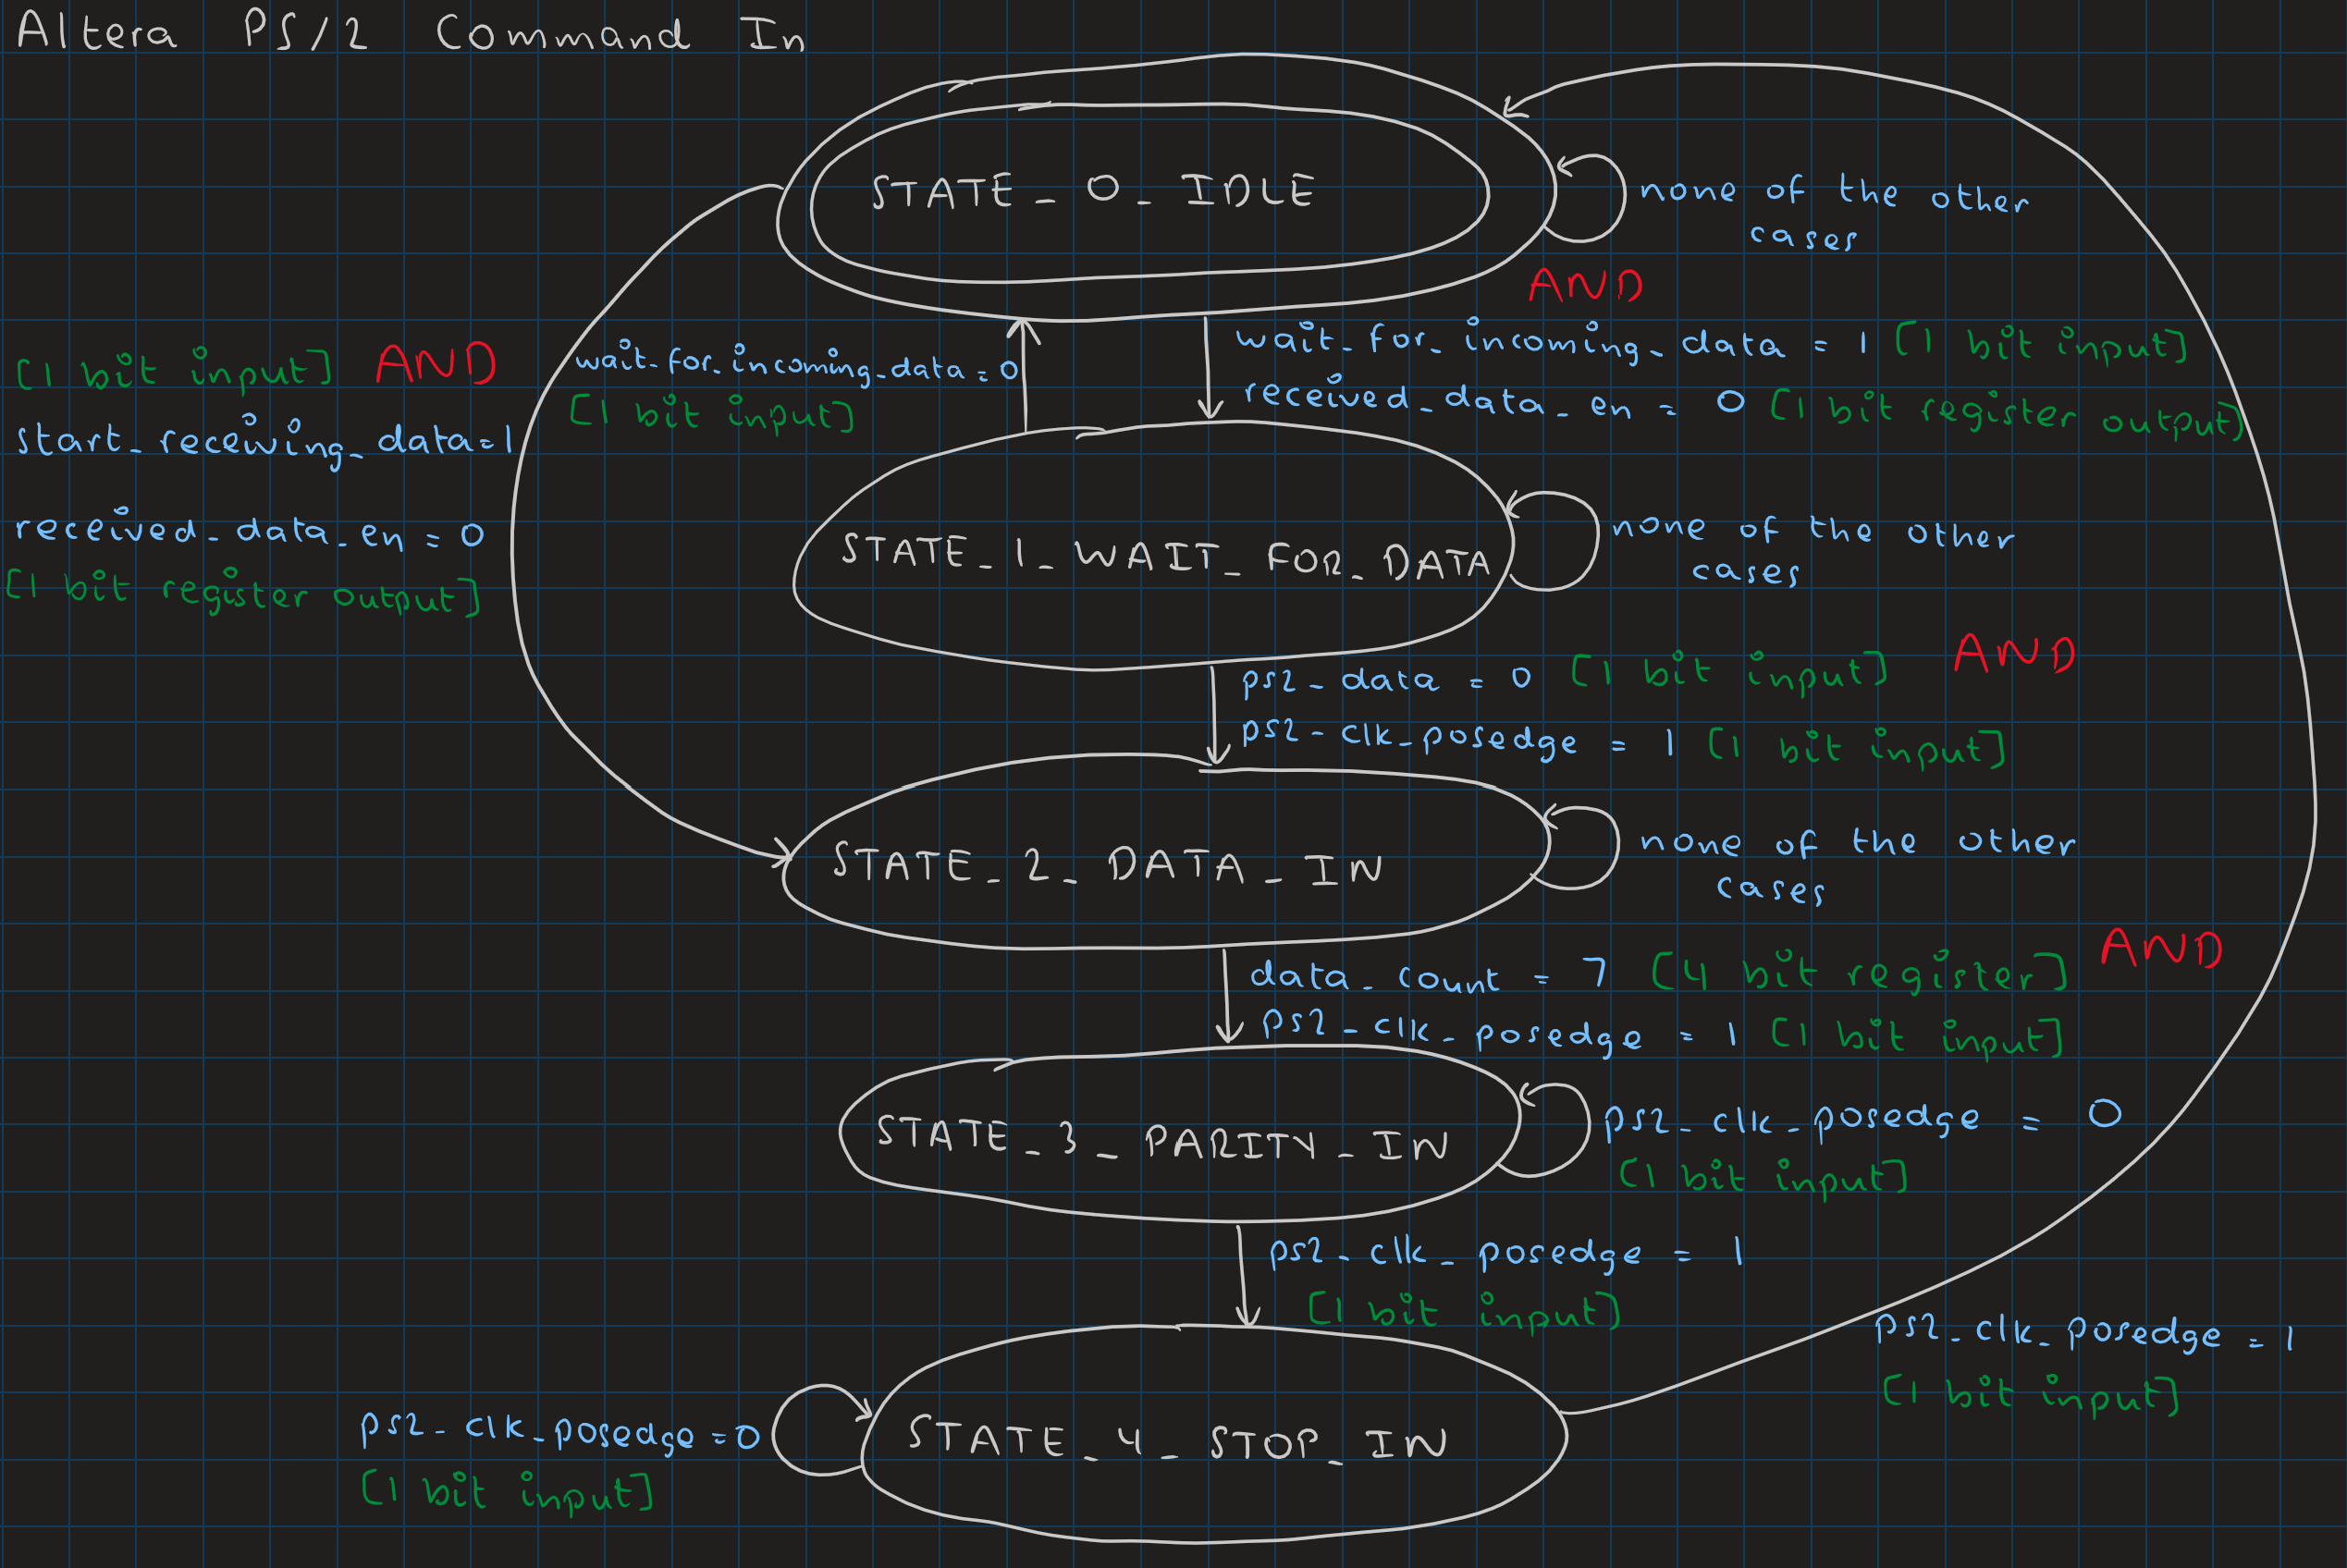 Altera PS/2 Command In
STATE_0_IDLE
none of the other
cases
AND
wait_for_incoming_data = 1 [1 bit input]
received_data_en = 0 [1 bit register output]
wait_for_incoming_data = 0
[1 bit input]
[1 bit input] AND
start_receiving_data=1
received_data_en = 0
[1 bit register output]
STATE_1_WAIT_FOR_DATA
none of the other
cases
AND
ps2_data = 0 [1 bit input]
ps2_clk_posedge = 1 [1 bit input]
STATE_2_DATA_IN
none of the other
cases
AND
data_count = 7 [4 bit register]
ps2_clk_posedge = 1 [1 bit input]
STATE_3_PARITY_IN
ps2_clk_posedge = 0
[1 bit input]
ps2_clk_posedge = 1
[1 bit input]
ps2_clk_posedge = 1
[1 bit input]
STATE_4_STOP_IN
ps2_clk_posedge=0
[1 bit input]